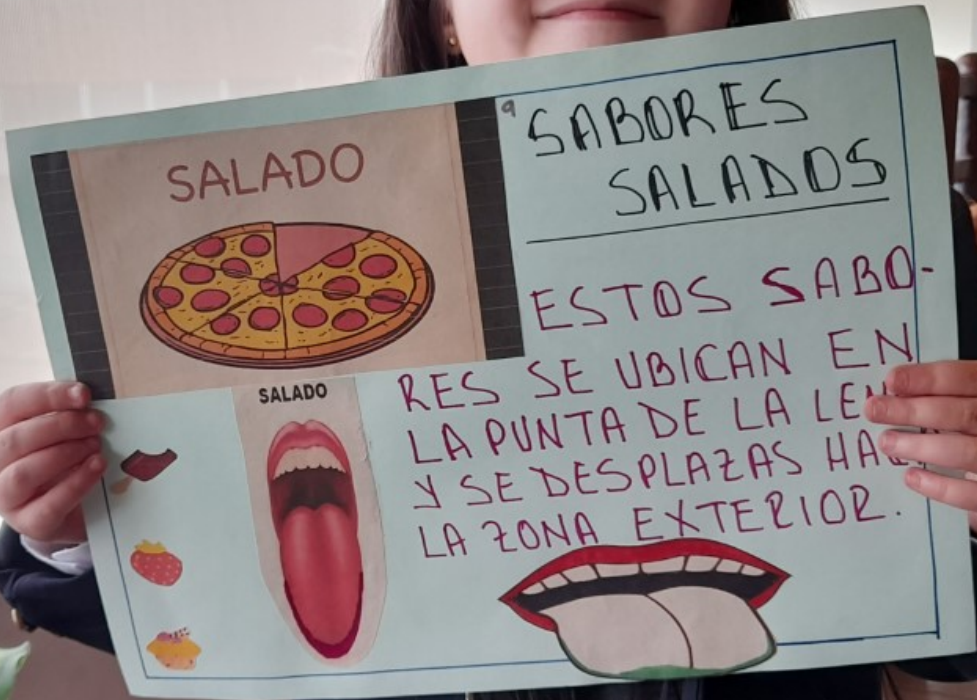 SALADO
SABORES
SALADOS
ESTOS SABO-
RES SE UBICAN EN
LA PUNTA DE LA
Y SE DESPLAZAS
LA ZONA EXTERIOR.
SALADO